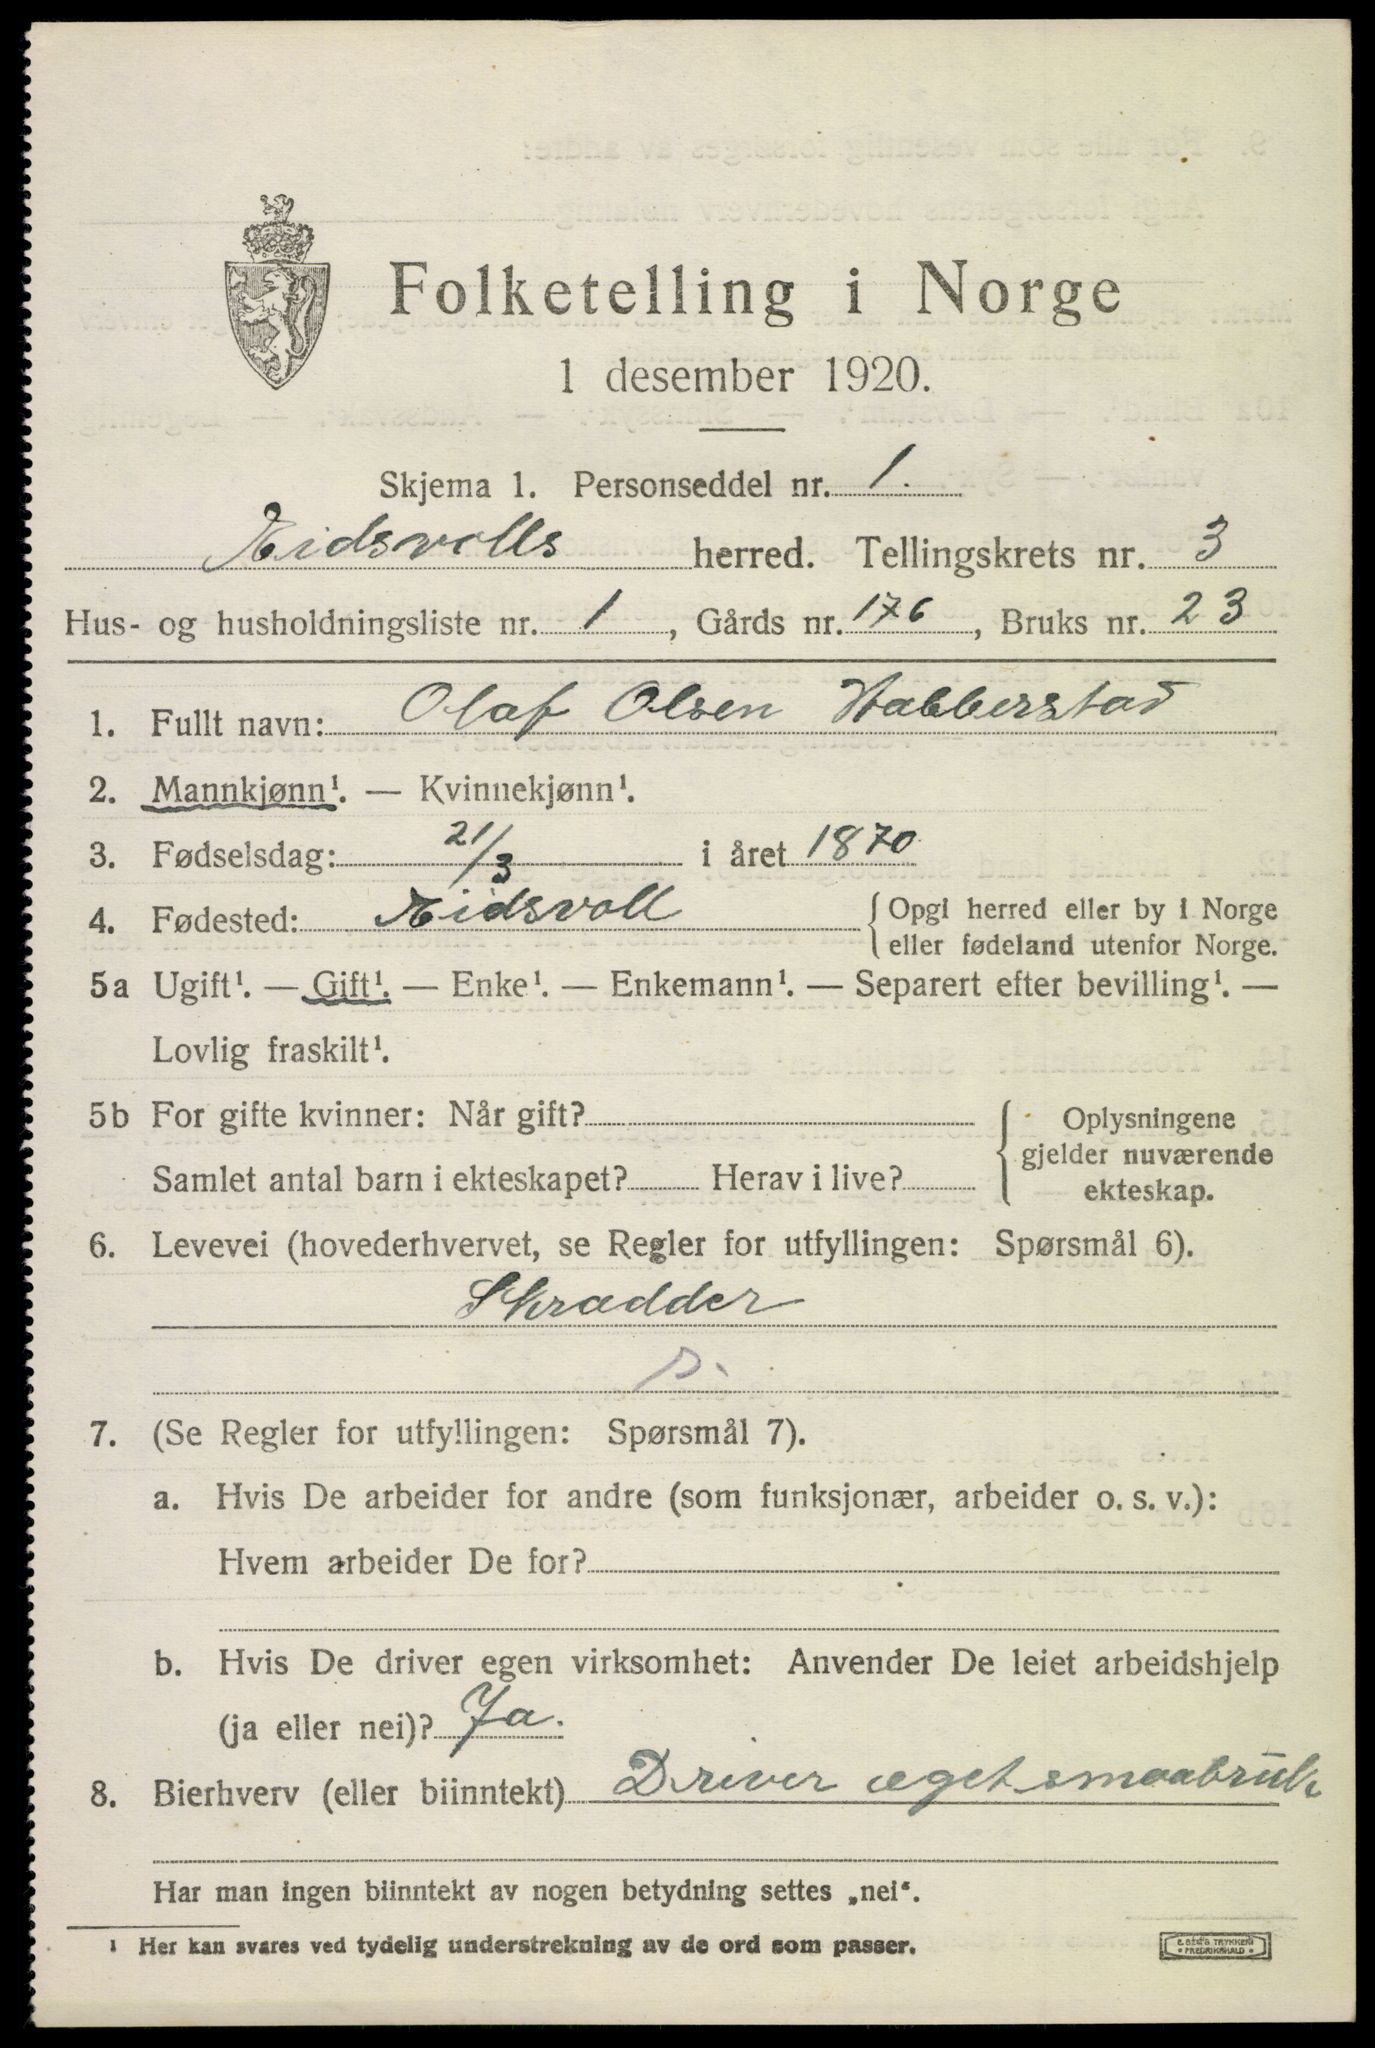 Folketelling i Norge
1 desember 1920.
Skjema 1. Personseddel nr. 1.
Eidsvolls herred. Tellingskrets nr. 3
Hus- og husholdningsliste nr. 1, Gårds nr. 176, Bruks nr. 23
1. Fullt navn: Olaf Olsen Habberstad
2. Mannkjønn¹. — Kvinnekjønn¹.
3. Fødselsdag: 21/3 i året 1870
4. Fødested: Eidsvoll { Opgi herred eller by i Norge
eller fødeland utenfor Norge.
5a Ugift¹. — Gift¹. — Enke¹. — Enkemann¹. — Separert efter bevilling¹. —
Lovlig fraskilt¹.
5b For gifte kvinner: Når gift? { Oplysningene
gjelder nuværende
Samlet antal barn i ekteskapet? Herav i live? ekteskap.
6. Levevei (hovederhvervet, se Regler for utfyllingen: Spørsmål 6).
Skradder
s.
7. (Se Regler for utfyllingen: Spørsmål 7).
a. Hvis De arbeider for andre (som funksjonær, arbeider o. s. v.):
Hvem arbeider De for?
b. Hvis De driver egen virksomhet: Anvender De leiet arbeidshjelp
(ja eller nei)? Ja.
8. Bierhverv (eller biinntekt) Driver eget smaabruk
Har man ingen biinntekt av nogen betydning settes „nei“.
¹ Her kan svares ved tydelig understrekning av de ord som passer.
E. SEM'S TRYKKERI
FREDRIKSHALD